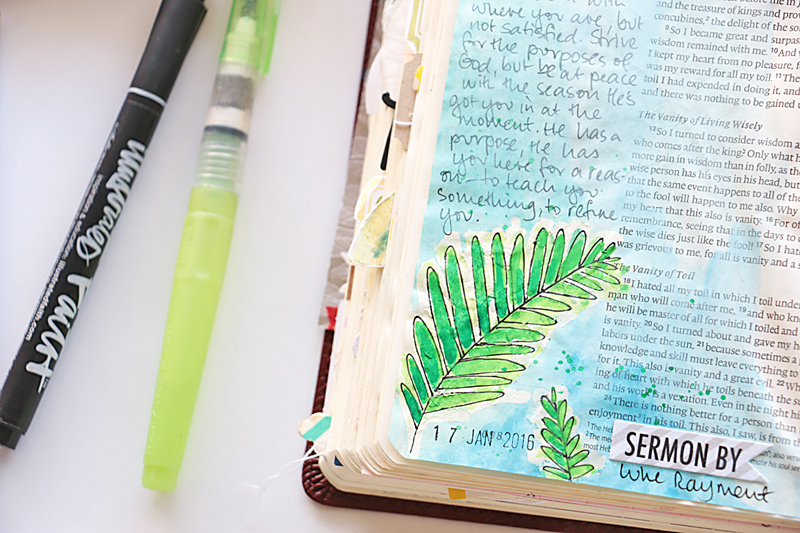 where you are, but
not satisfied. Strive
for the purposes of
God, but be at peace
with the season He's
got you in at the
moment. He has a
purpose, He has
you here for a reas-
on – to teach you
something, to refine
you.
17 JAN 2016
SERMON BY
Luke Rayment
and the treasure of kings and
concubines,² the delight of the
⁹So I became great and
wisdom remained with me. ¹⁰And
I kept my heart from no pleasure,
was my reward for all my toil. ¹¹
toil I had expended in doing it, and
and there was nothing to be gained
The Vanity of Living Wisely
¹²So I turned to consider wisdom
who comes after the king? Only what
more gain in wisdom than in folly, as
wise person has his eyes in his head, but
that the same event happens to all of
to the fool will happen to me also. Why
my heart that this also is vanity. ¹⁶For
remembrance, seeing that in the days to
the wise dies just like the fool! ¹⁷So I
was grievous to me, for all is vanity and a
The Vanity of Toil
¹⁸I hated all my toil in which I toil under
man who will come after me, ¹⁹and who
he will be master of all for which I toiled and
is vanity. ²⁰So I turned about and gave my
labors under the sun, ²¹because sometimes a
knowledge and skill must leave everything to
for it. This also is vanity and a great evil. ²²
ing of heart with which he toils beneath the
and his work is a vexation. Even in the night his
²⁴There is nothing better for a person than
enjoyment³ in his toil. This also, I saw, is from
Illustrated Faith